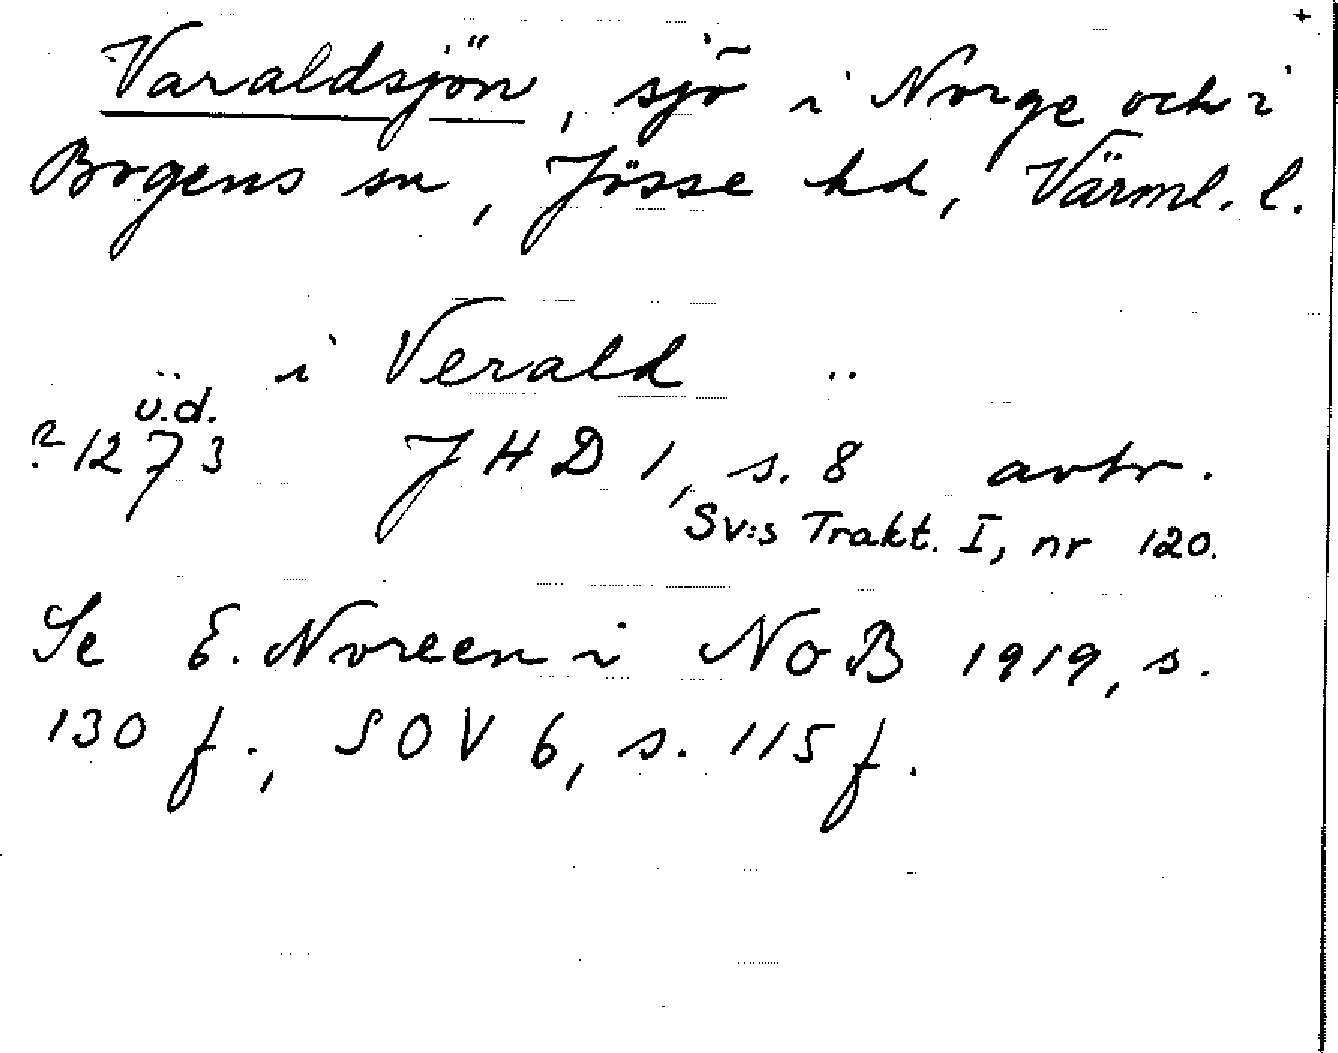 +
Varaldsjön, sjö i Norge och i
Bogens sn, Jösse hd, Värml. l.
i Verald
u.d.
? 1273 JHD 1, s. 8 avtr.
Sv:s Trakt. I, nr 120.
Se E. Noreen i NoB 1919, s.
130 f., SOV 6, s. 115 f.